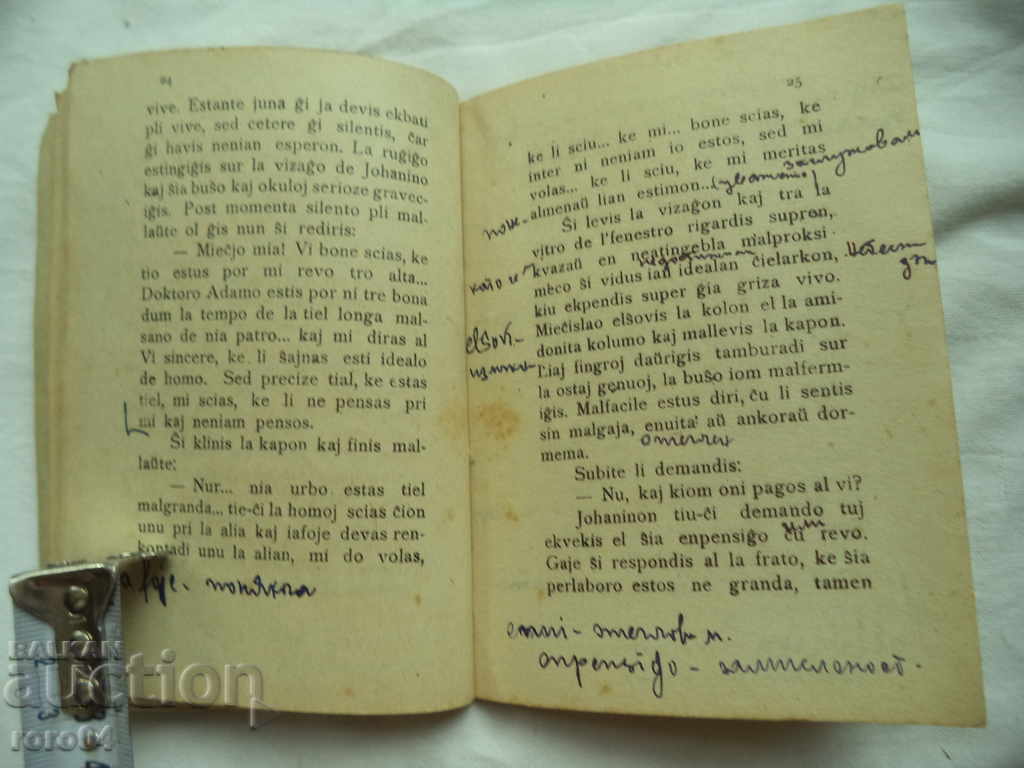 24
vive. Estante juna ĝi ja devis ekbati
pli vive, sed cetere ĝi silentis, ĉar
ĝi havis nenian esperon. La ruĝiĝo
estingiĝis sur la vizaĝo de Johanino
kaj ŝia buŝo kaj okuloj serioze graveciĝis.
Post momenta silento pli mallaŭte
ol ĝis nun ŝi rediris:
— Mieĉjo mia! Vi bone scias, ke
tio estus por mi revo tro alta...
Doktoro Adamo estis por ni tre bona
dum la tempo de la tiel longa malsano
de nia patro... kaj mi diras al
Vi sincere, ke li ŝajnas esti idealo
de homo. Sed precize tial, ke estas
tiel, mi scias, ke li ne pensas pri
mi kaj neniam pensos.
Ŝi klinis la kapon kaj finis mallaŭte:
— Nur... nia urbo estas tiel
malgranda... tie-ĉi la homoj scias ĉion
unu pri la alia kaj iafoje devas renkontadi
unu la alian, mi do volas,
понякога
25
ke li sciu... ke mi... bone scias, ke
inter ni neniam io estos, sed mi
volas... ke li sciu, ke mi meritas
almenaŭ lian estimon...
Ŝi levis la vizaĝon kaj tra la
vitro de l'fenestro rigardis supron,
kvazaŭ en neatingebla malproksimeco
ŝi vidus ian idealan ĉielarkon,
kiu ekpendis super ĝia griza vivo.
Mieĉislao elŝovis la kolon el la amidonita
kolumo kaj mallevis la kapon.
Liaj fingroj daŭrigis tamburadi sur
la ostaj genuoj, la buŝo iom malfermiĝis.
Malfacile estus diri, ĉu li sentis
sin malgaja, enuita aŭ ankoraŭ dormema.
Subite li demandis:
— Nu, kaj kiom oni pagos al vi?
Johaninon tiu-ĉi demando tuj
ekvekis el ŝia enpensiĝo ĉu revo.
Gaje ŝi respondis al la frato, ke ŝia
perlaboro estos ne granda, tamen
като че
elŝovi-
BALKAN
auction
roro04